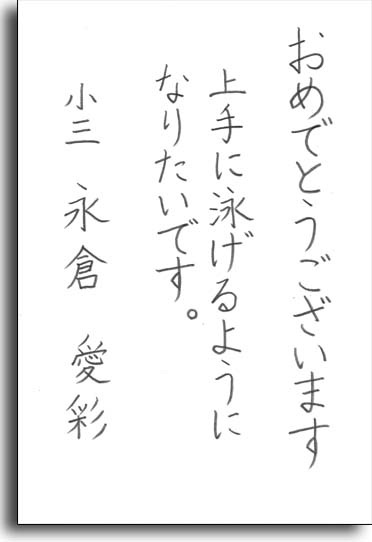 おめでとうございます
上手に泳げるように
なりたいです。
小三 永倉 愛彩